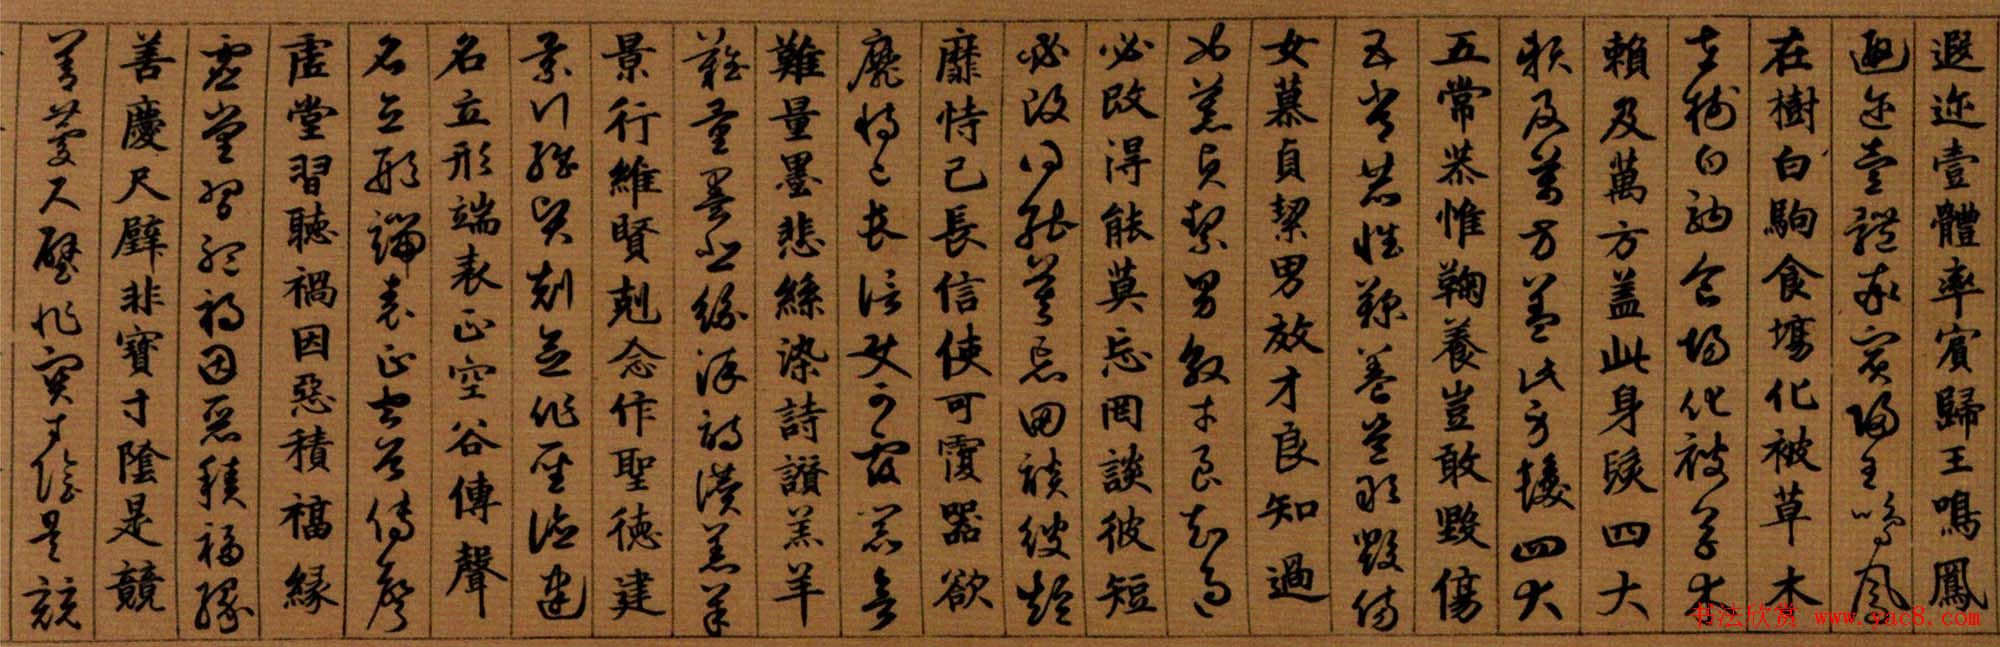 遐迩壹體率賓歸王鳴鳳
遐迩壹體率賓歸王鳴鳳
在樹白駒食場化被草木
在樹白駒食場化被草木
賴及萬方蓋此身髮四大
賴及萬方蓋此身髮四大
五常恭惟鞠養豈敢毀傷
五常恭惟鞠養豈敢毀傷
女慕貞絜男效才良知過
女慕貞絜男效才良知過
必改得能莫忘罔談彼短
必改得能莫忘罔談彼短
靡恃己長信使可覆器欲
靡恃己長信使可覆器欲
難量墨悲絲染詩讃羔羊
難量墨悲絲染詩讃羔羊
景行維賢剋念作聖德建
景行維賢剋念作聖德建
名立形端表正空谷傳聲
名立形端表正空谷傳聲
虛堂習聽禍因惡積福緣
虛堂習聽禍因惡積福緣
善慶尺璧非寶寸陰是競
善慶尺璧非寶寸陰是競
书法欣赏 www.yac8.com